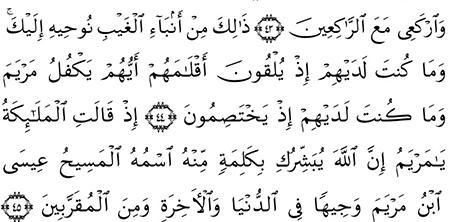 وَٱرْكَعِى مَعَ ٱلرَّٰكِعِينَ ﴿٤٣﴾ ذَٰلِكَ مِنْ أَنۢبَآءِ ٱلْغَيْبِ نُوحِيهِ إِلَيْكَ ۚ
وَمَا كُنتَ لَدَيْهِمْ إِذْ يُلْقُونَ أَقْلَٰمَهُمْ أَيُّهُمْ يَكْفُلُ مَرْيَمَ
وَمَا كُنتَ لَدَيْهِمْ إِذْ يَخْتَصِمُونَ ﴿٤٤﴾ إِذْ قَالَتِ ٱلْمَلَٰٓئِكَةُ
يَٰمَرْيَمُ إِنَّ ٱللَّهَ يُبَشِّرُكِ بِكَلِمَةٍ مِّنْهُ ٱسْمُهُ ٱلْمَسِيحُ عِيسَى
ٱبْنُ مَرْيَمَ وَجِيهًا فِى ٱلدُّنْيَا وَٱلْءَاخِرَةِ وَمِنَ ٱلْمُقَرَّبِينَ ﴿٤٥﴾